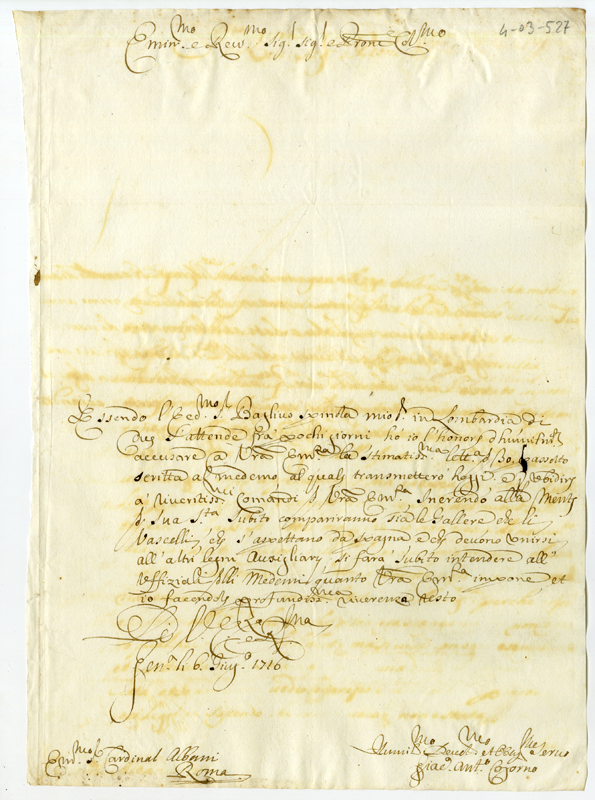 4-03-527
Emin.mo e Rev.mo Sig.r Sig.r e Prone Col.mo
Essendo l' S.r Baglivo Spinola mio S.r in Lombardia di
dove s'attende frà pochi giorni hò io l'honore d'humilm.te
accusare a Vra Em.za la stimatiss.ma lett.a passato
scritta al medemo, al quale transmetterò hoggi
a' riveritiss.mi Comandi di Vra Em.za inerendo alla Mente
di Sua S.tà Subito compariranno sia le Gallere che li
Vascelli, che s'aspettano da Spagna e che devono unirsi
all'altri legni Ausigliarij si farà subito intendere all'
Uffiziali delli Medemi quanto Vra Em.za impone et
io facendole profundiss.ma riverenza resto
Di V.ra Em.za
Gen.a li 6 Giug.o 1716
Em.mo S.r Cardinal Albani
Roma
Humil.mo Devot.mo et Obblig.mo Servo
Giac.o Ant.o Cogorno